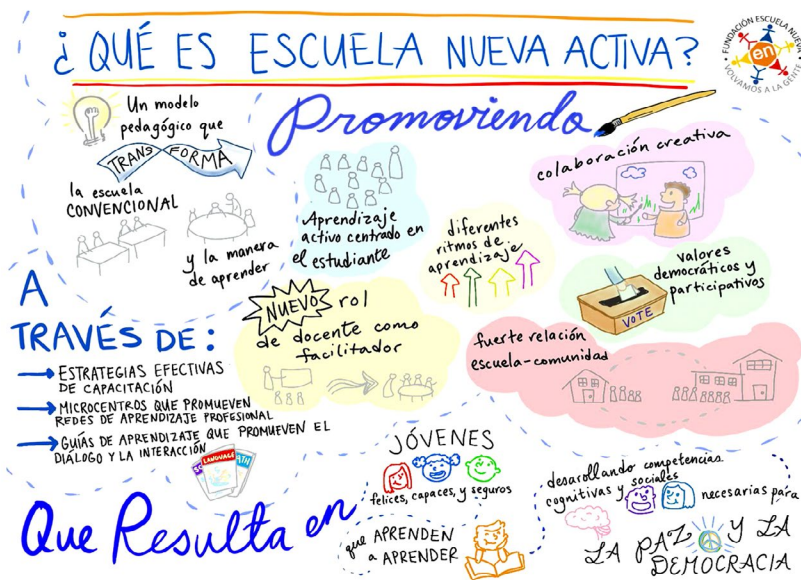 ¿QUÉ ES ESCUELA NUEVA ACTIVA?
FUNDACIÓN ESCUELA NUEVA
VOLVAMOS A LA GENTE
en
Un modelo
pedagógico que
TRANSFORMA
la escuela
CONVENCIONAL
y la manera
de aprender
Promoviendo
Aprendizaje
activo centrado en
el estudiante
diferentes
ritmos de
aprendizaje
colaboración creativa
valores
democráticos y
participativos
VOTE
NUEVO rol
de docente como
facilitador
fuerte relación
escuela-comunidad
A
TRAVÉS DE:
ESTRATEGIAS EFECTIVAS
DE CAPACITACIÓN
MICROCENTROS QUE PROMUEVEN
REDES DE APRENDIZAJE PROFESIONAL
GUÍAS DE APRENDIZAJE QUE PROMUEVEN EL
DIÁLOGO Y LA INTERACCIÓN
LANGUAGE
Que Resulta en
JÓVENES
felices, capaces, y seguros
que APRENDEN
a APRENDER
desarollando competencias
cognitivas y sociales
necesarias para
LA PAZ Y LA
DEMOCRACIA